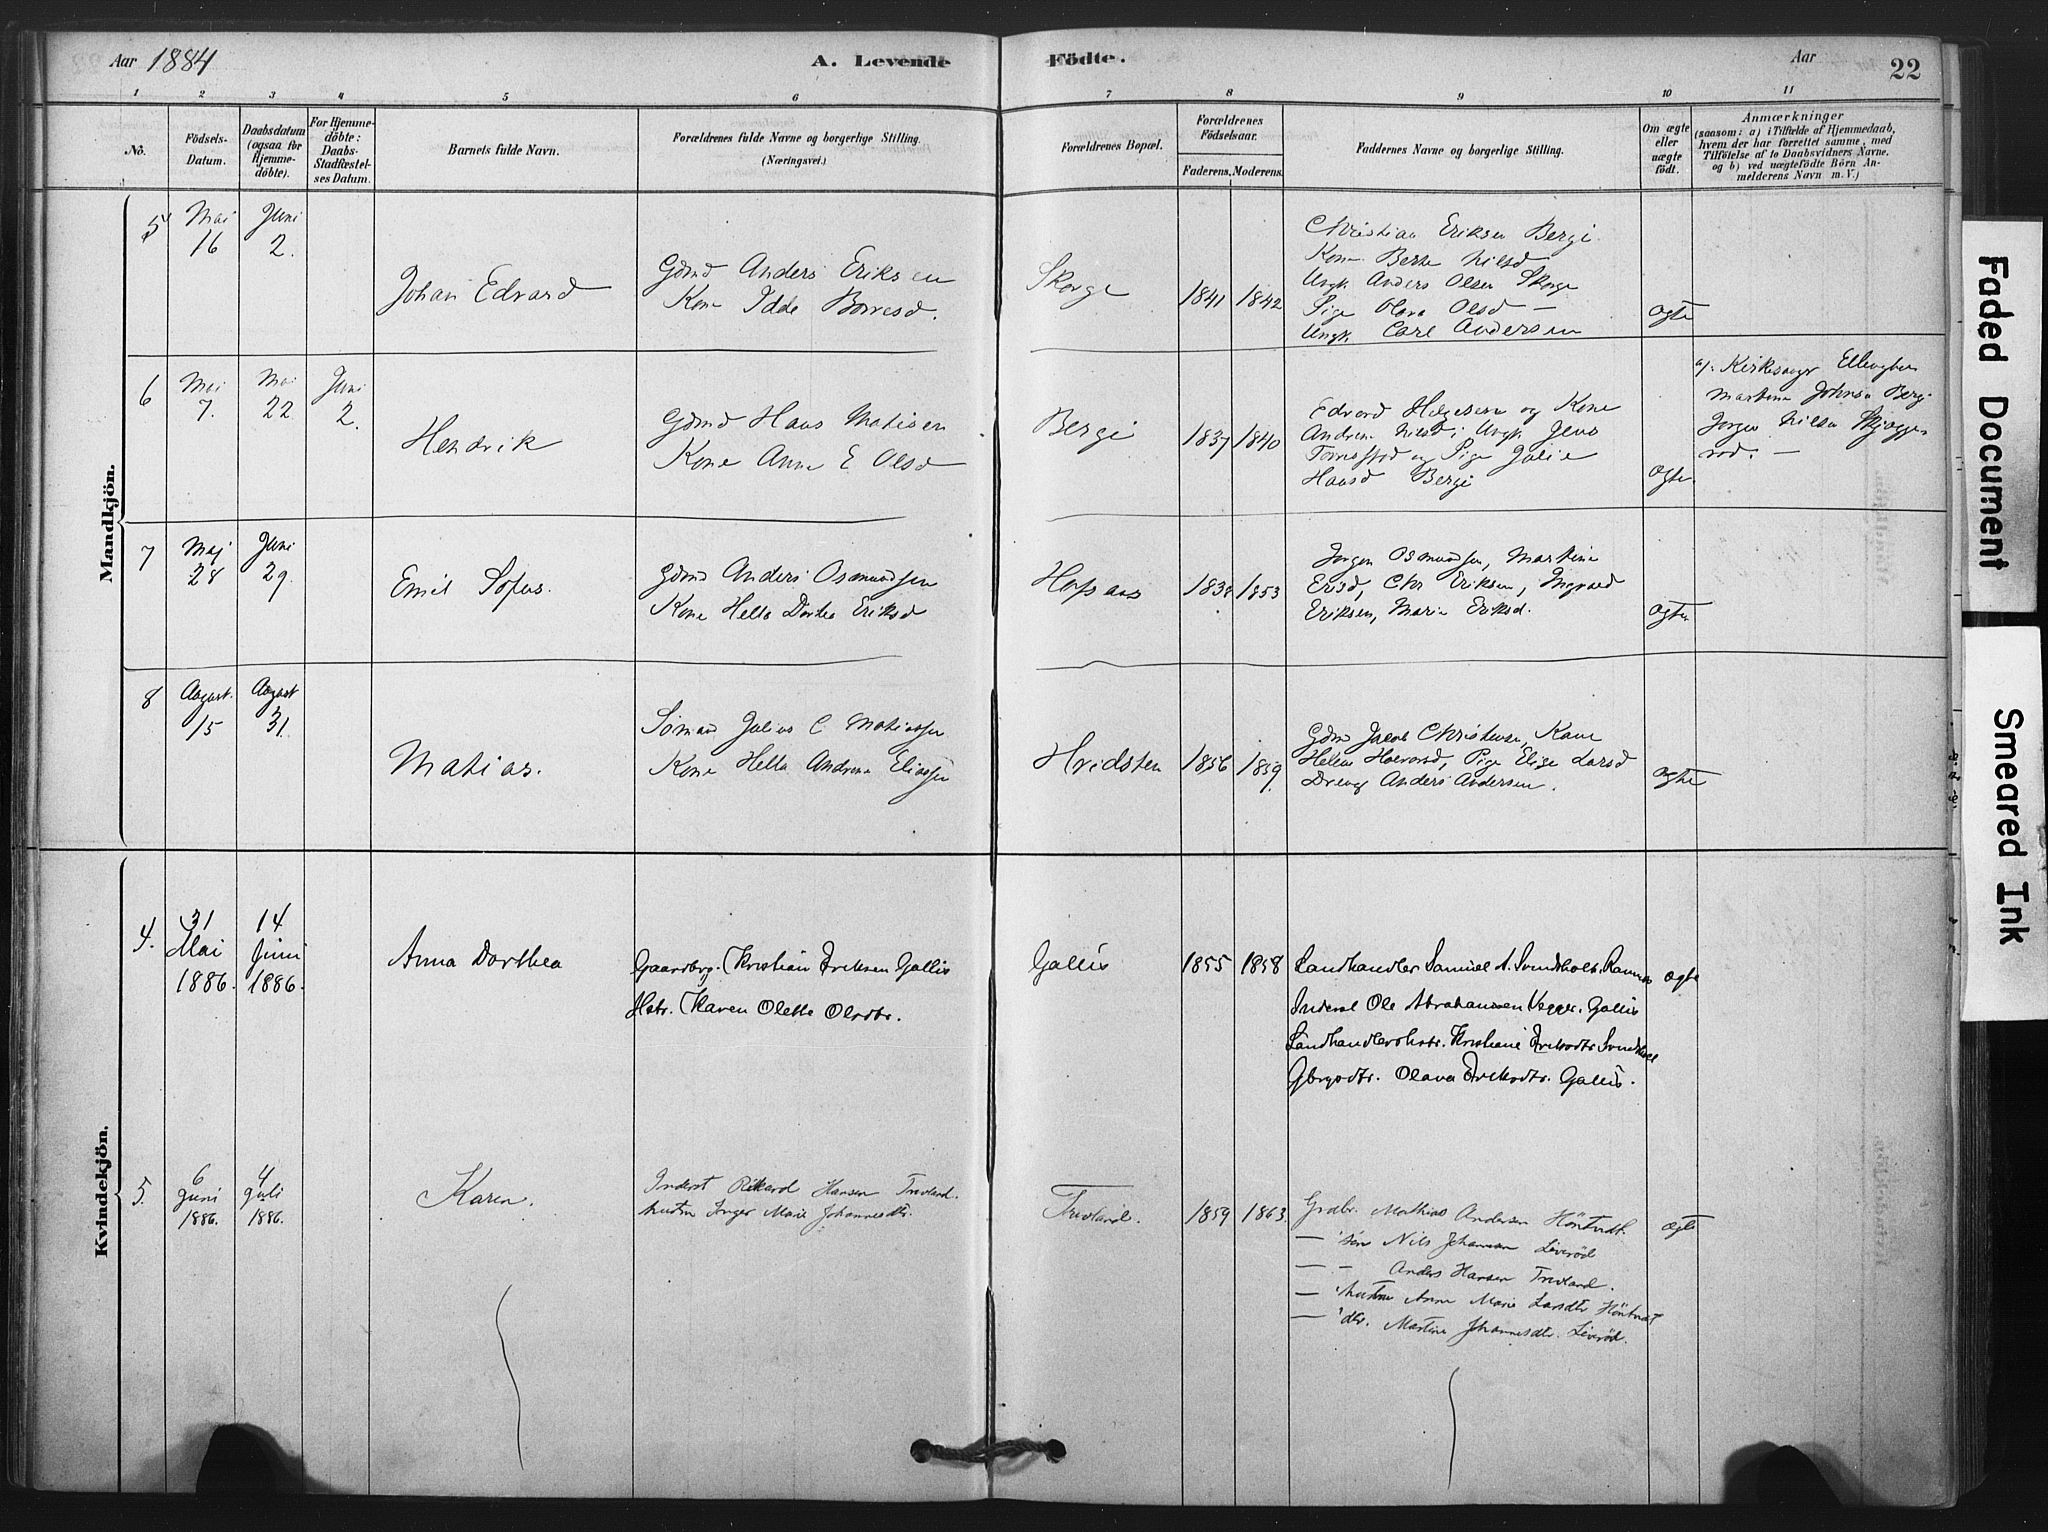 Aar 1884
A. Levende
Födte.
Aar
22
1 2 3 4 5 6 7 8 9 10 11
No.
Födsels-
Datum.
Daabsdatum
(ogsaa for
Hjemme-
döbte).
For Hjemme-
döbte:
Daabs-
Stadfæstel-
ses Datum.
Barnets fulde Navn.
Forældrenes fulde Navne og borgerlige Stilling.
(Næringsvei.)
Forældrenes Bopæl.
Forældrenes
Födselsaar.
Faderens. Moderens.
Faddernes Navne og borgerlige Stilling.
Om ægte
eller
uægte
født.
Anmærkninger
(saasom: a) i Tilfælde af Hjemmedaab,
hvem der har forrettet samme, med
Tilföielse af to Daabsvidners Navne,
og b) ved uægtefödte Börn An-
melderens Navn m. V.)
Mandkjön.
5
Mai
16
Juni
2.
Johan Edvard
Gdmd Anders Eriksen
Kone Idde Borresd.
Skorge
1841 1842
Christian Eriksen Berge
Kone Berte Nilsd
Ungk Anders Olsen Skorge
Pige Olava Olsd —
Ungk Carl Andersen
ogte
6
Mai
7.
Mai
22
Juni
2.
Hendrik
Gdmd Hans Matisen
Kone Anne E Olsd
Berge
1837 1840
Edvard Helgesen og Kone
Andrea Nilsd; Ungk Jens
og Pige Julie
Hansd Berge
ogte
a/. Kirkesanger
Martin Johnsen Berg
Jorgen Nilsen
rod. —
7
Maj
28
Juni
29.
Emil Sofus.
Gdmd Anders Osmundsen
Kone Helle Dorthea Eriksd
1853
Jorgen Osmundsen, Martine
Erisd, Chr Eriksen, Ingvald
Eriksen, Marie Eriksd.
ogte
8
August.
15
August
31.
Matias.
Sömand Julius C Matiassen
Kone Helle Andrea Eliassen
Hvidsten
1856 1859.
Gdm Jacob Christensen, Kone
Helene Halvorsd, Pige Elise Larsd
Dreng Anders Andersen.
ogte
Kvindekjön.
4.
31
Mai
1886.
14
Juni
1886.
Anna Dorthea
Gaardbrg. Kristian Eriksen Gallis
Hstr. Karen Olette Olsdtr.
Gallis
1855 1858
Landhandler Samuel A. Svendsholt. Ramnæs
Inderst Ole Abrahamsen Vegger. Gallis
Landhandlerhstr. Kristiane Eriksdtr. Svendsholt
Gbrgsdtr. Olava Eriksdtr. Gallis.
ægte
5.
6
Juni
1886.
4
Juli
1886.
Karen.
Inderst Rikard Hansen Trevland.
hustru Inger Marie Johannesdtr.
Trevland.
1859 1863.
Grdbr. Mathias Andersen Höntvedt.
— 'sön Nils Johansen Liveröd
— - Anders Hansen Trevland.
— 'hustru Anne Marie Larsdtr Höntvedt
— 'dtr. Martine Johannesdtr. Liveröd.
ægte
Faded Document
Smeared Ink